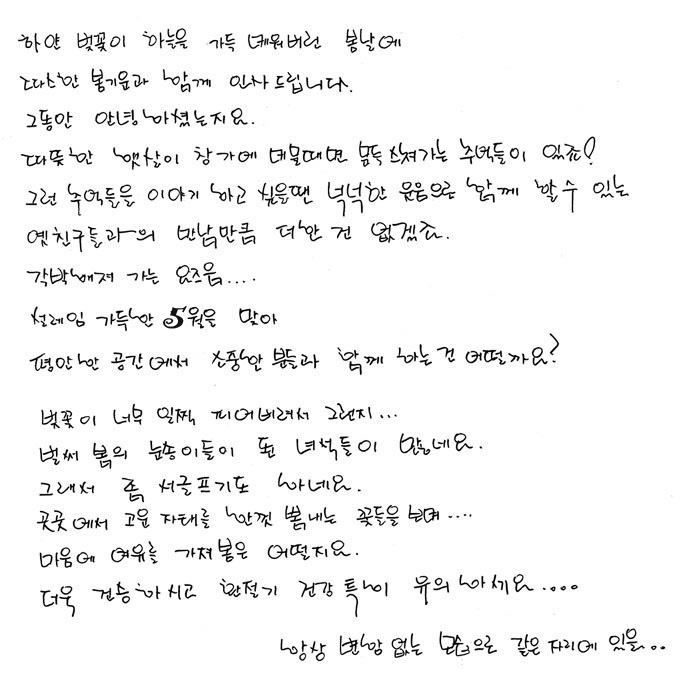 하얀 벚꽃이 하늘을 가득 메워버린 봄날에
따스한 봄기운과 함께 인사드립니다.
그동안 안녕하셨는지요.
따뜻한 햇살이 창가에 머물때면 문득 스쳐가는 추억들이 있죠!
그런 추억들을 이야기 하고 싶을땐 넉넉한 웃음으로 함께 할 수 있는
옛친구들과의 만남만큼 더한 건 없겠죠.
각박해져 가는 요즈음....
설레임 가득한 5월을 맞아
평안한 공간에서 소중한 분들과 함께 하는건 어떨까요?
벚꽃이 너무 일찍 피어버려서 그런지...
벌써 봄의 눈송이들이 된 녀석들이 많네요.
그래서 좀 서글프기도 하네요.
곳곳에서 고운 자태를 한껏 뽐내는 꽃들을 보며....
마음에 여유를 가져봄은 어떨지요.
더욱 건승하시고 환절기 건강 특히 유의하세요....
항상 변함없는 모습으로 같은 자리에 있을..